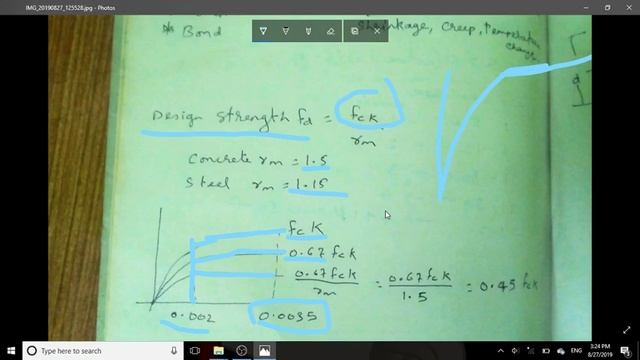 IMG_20190827_125528.jpg - Photos
* Bond
Shrinkage, Creep, Temperature
change
d
Design Strength fd = fck
γm
Concrete γm = 1.5
Steel γm = 1.15
fck
0.67 fck
0.67fck
γm
= 0.67fck
1.5
= 0.45 fck
0.002
0.0035
Type here to search
ENG
3:24 PM
8/27/2019